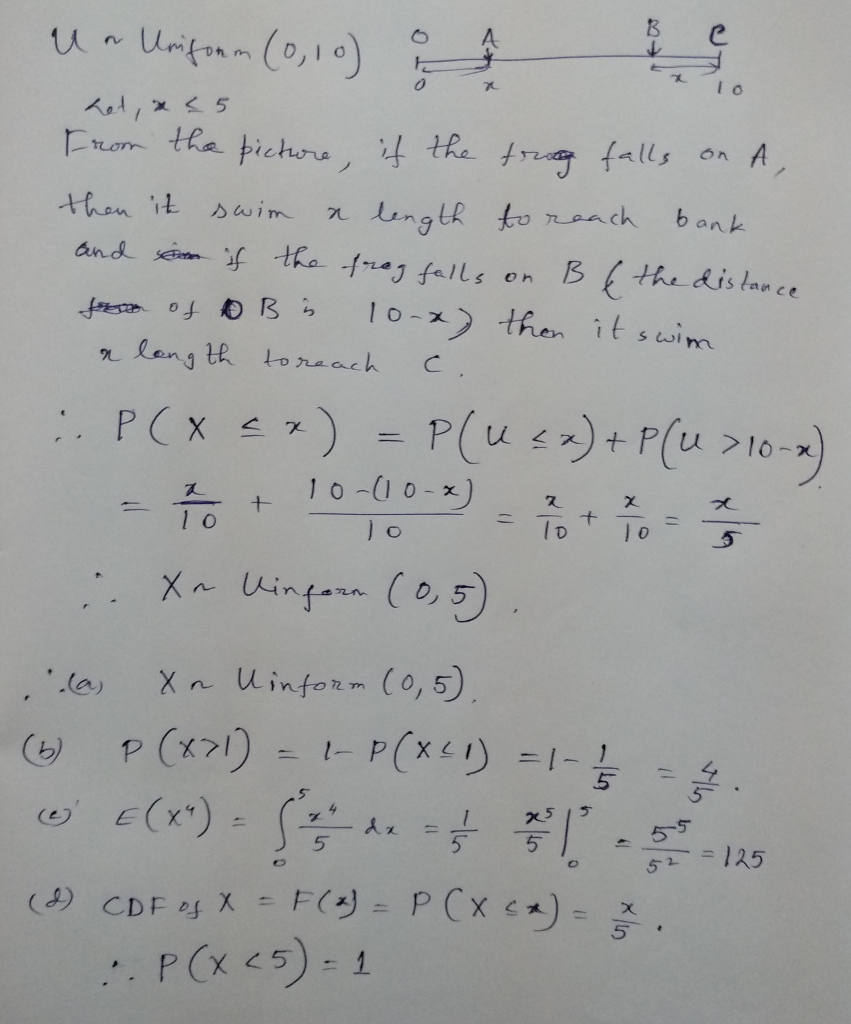 U ~ Uniform (0,10)
O A B C
0 x x 10
Let, x ≤ 5
From the picture, if the frog falls on A,
then it swim x length to reach bank
and if the frog falls on B ( the distance
of OB is 10-x) then it swim
x length to reach C.
∴ P(X ≤ x) = P(U ≤ x) + P(U > 10-x)
= x/10 + 10-(10-x)/10 = x/10 + x/10 = x/5
∴ X ~ Uinform (0,5).
∴(a) X ~ Uinform (0,5).
(b) P(X>1) = 1- P(X≤1) = 1- 1/5 = 4/5.
(c) E(X⁴) = ∫₀⁵ x⁴/5 dx = 1/5 x⁵/5 |₀⁵ = 5⁵/5² = 125
(d) CDF of X = F(x) = P(X ≤ x) = x/5.
∴ P(X<5) = 1